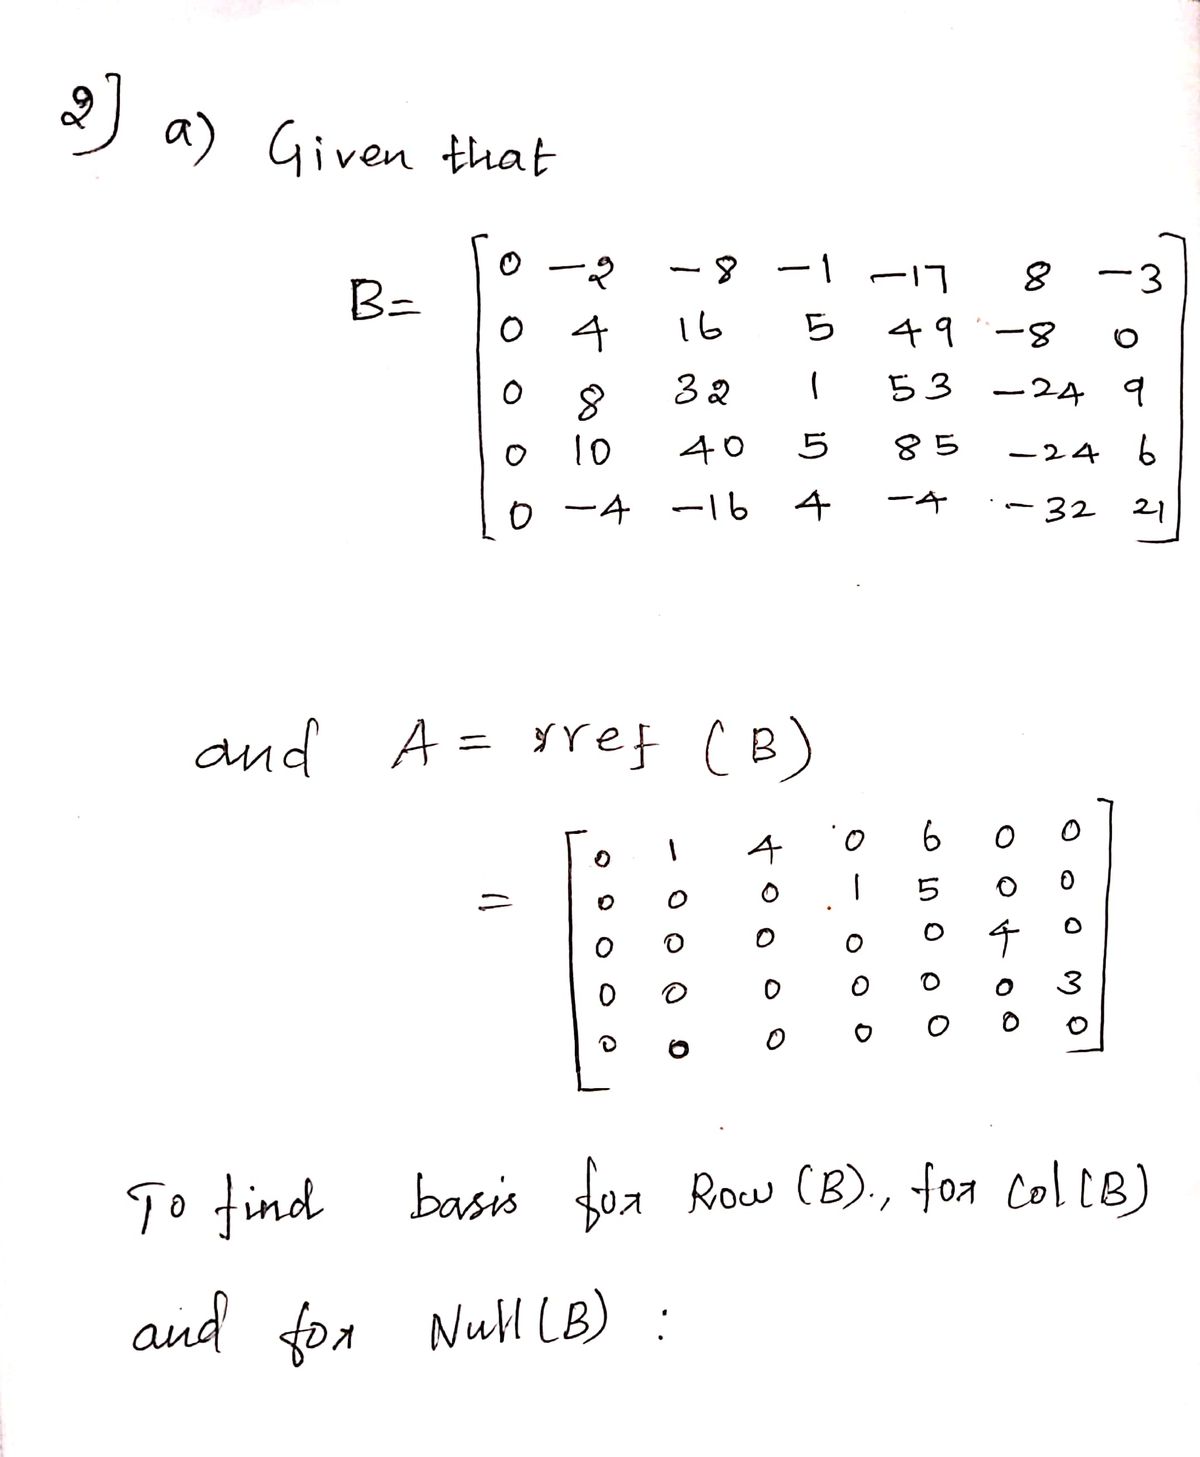 2] a) Given that
B= [ 0 -2 -8 -1 -17 8 -3
0 4 16 5 49 -8 0
0 8 32 1 53 -24 9
0 10 40 5 85 -24 6
0 -4 -16 4 -4 -32 21 ]
and A = rref (B)
= [ 0 1 4 0 6 0 0
0 0 0 1 5 0 0
0 0 0 0 0 4 0
0 0 0 0 0 0 3
0 0 0 0 0 0 0 ]
To find basis for Row (B)., for Col (B)
and for Null (B) :